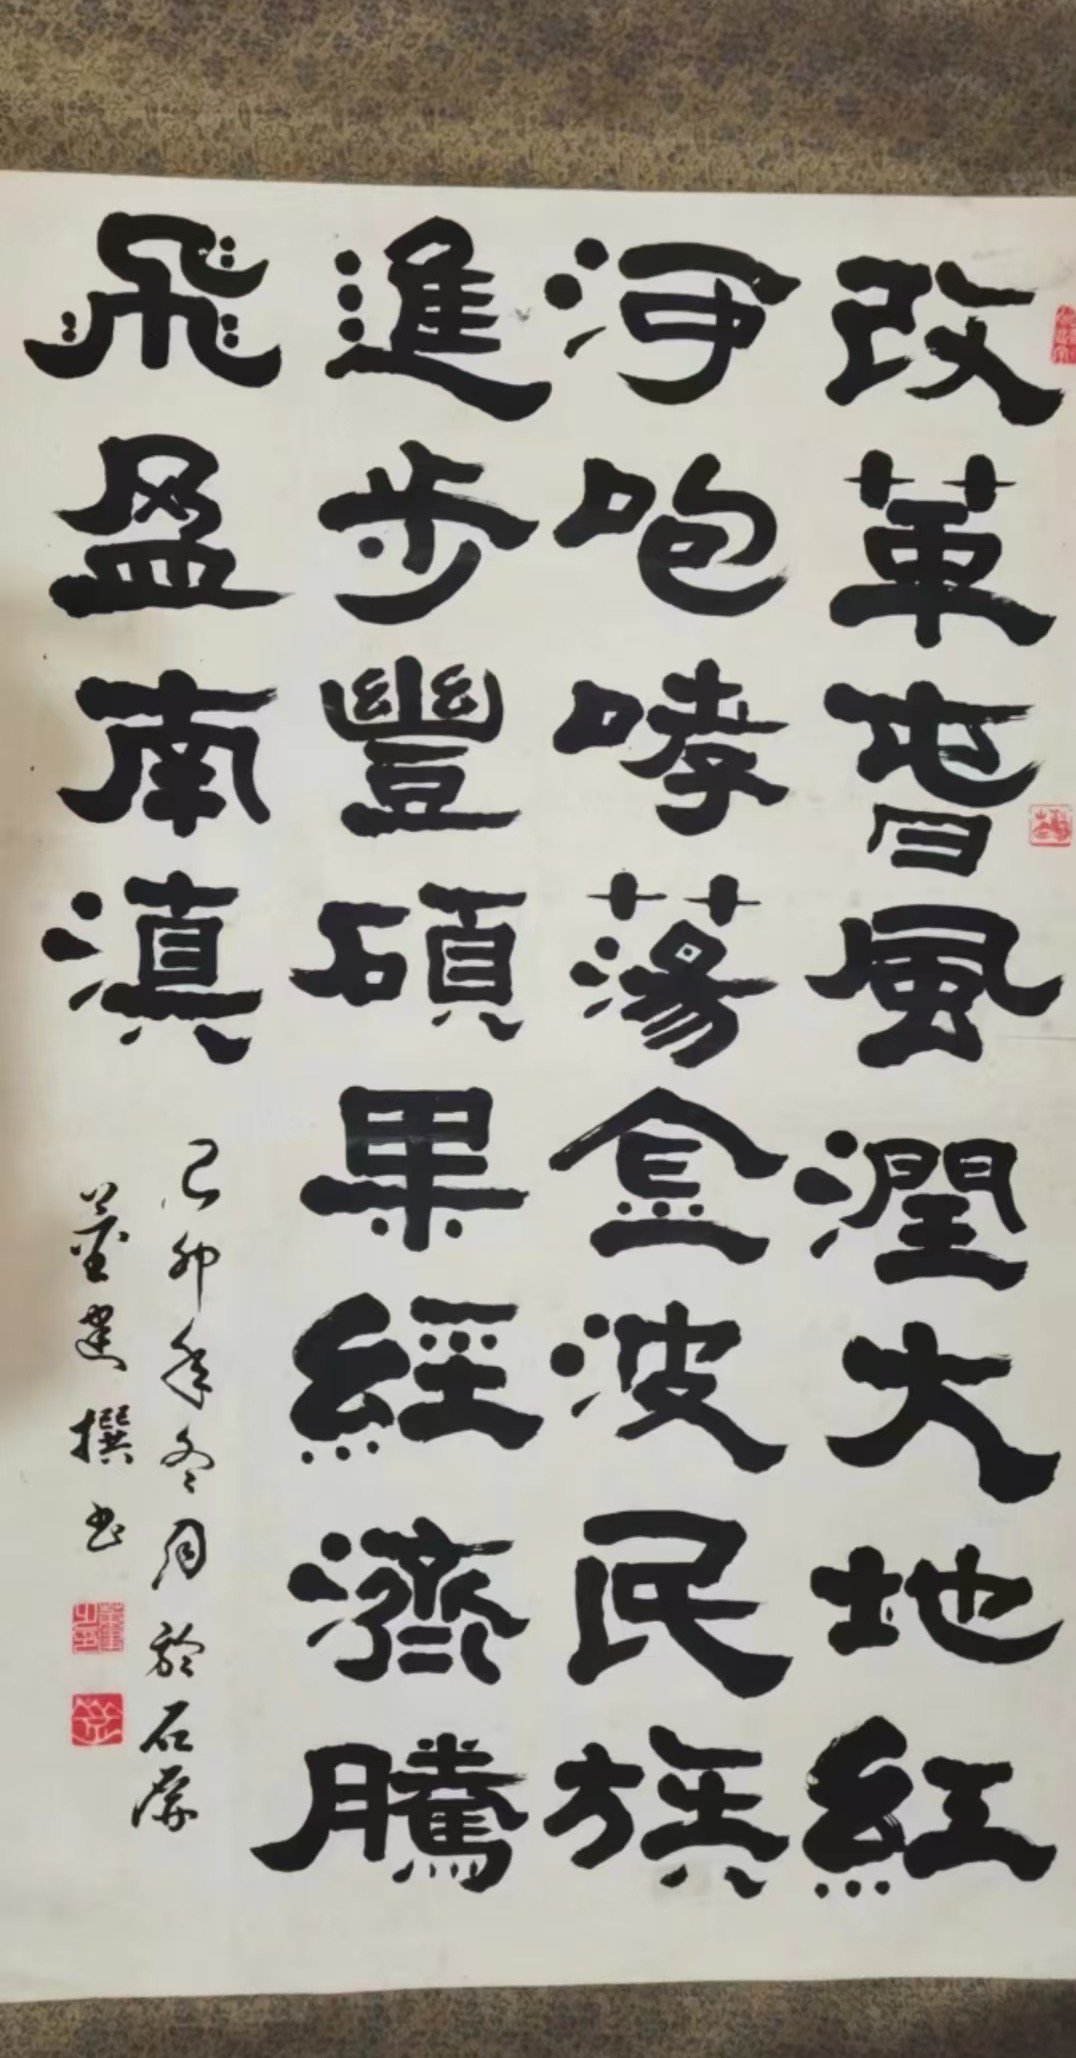 改革旾風潤大地紅
河咆哮蕩金波民族
進步豐碩果經濟騰
飛盈南滇
己卯年冬月於石屏
董建撰书